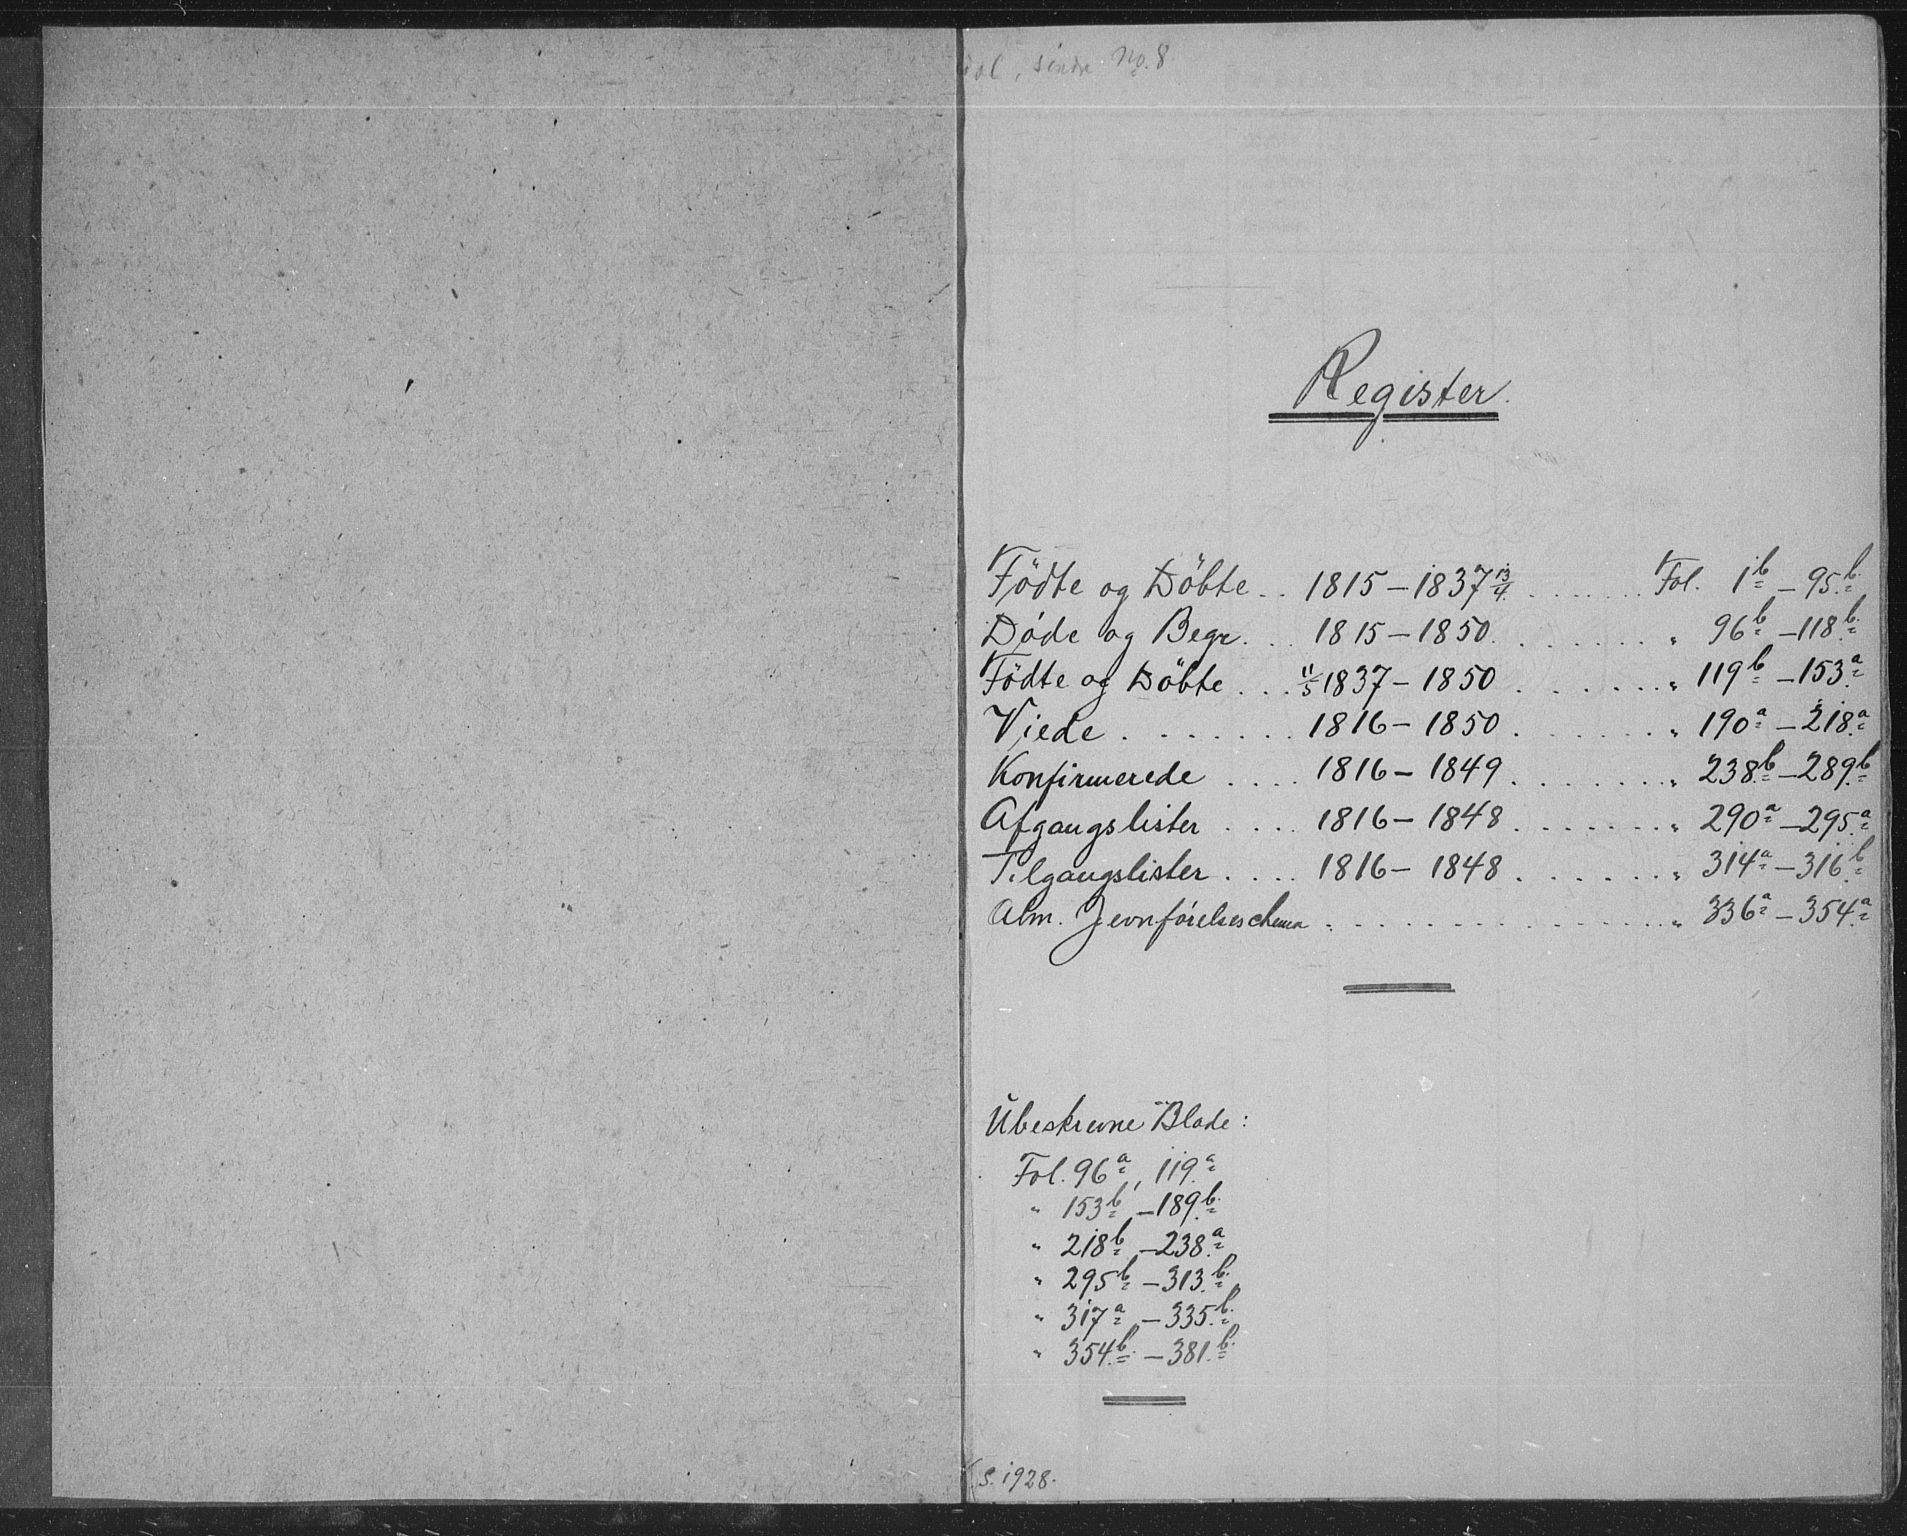 søndre No. 8
Register.
Födte og Döbte . . 1815 – 1837 13/4 . . . . . . Fol. 1b – 95b.
Døde og Begr. . . 1815 – 1850. . . . . . . " 96b – 118b.
Födte og Döbte . . . 11/5 1837 – 1850 . . . . . . " 119b – 153a.
Viede . . . . . . . 1816 – 1850 . . . . . . " 190a – 218a.
Konfirmerede . . . . 1816 – 1849 . . . . . . " 238b – 289b.
Afgangslister . . . . 1816 – 1848 . . . . . . " 290a – 295a.
Tilgangslister . . . . 1816 – 1848 . . . . . . " 314a – 316b.
Alm. Jevnförelsesschema . . . . . . . . . . . . . " 336a – 354a.
Ubeskrevne Blade:
Fol. 96a, 119a.
" 153b – 189b.
" 218b – 238a.
" 295b – 313b.
" 317a – 335b.
" 354b. – 381b.
S. 1928.